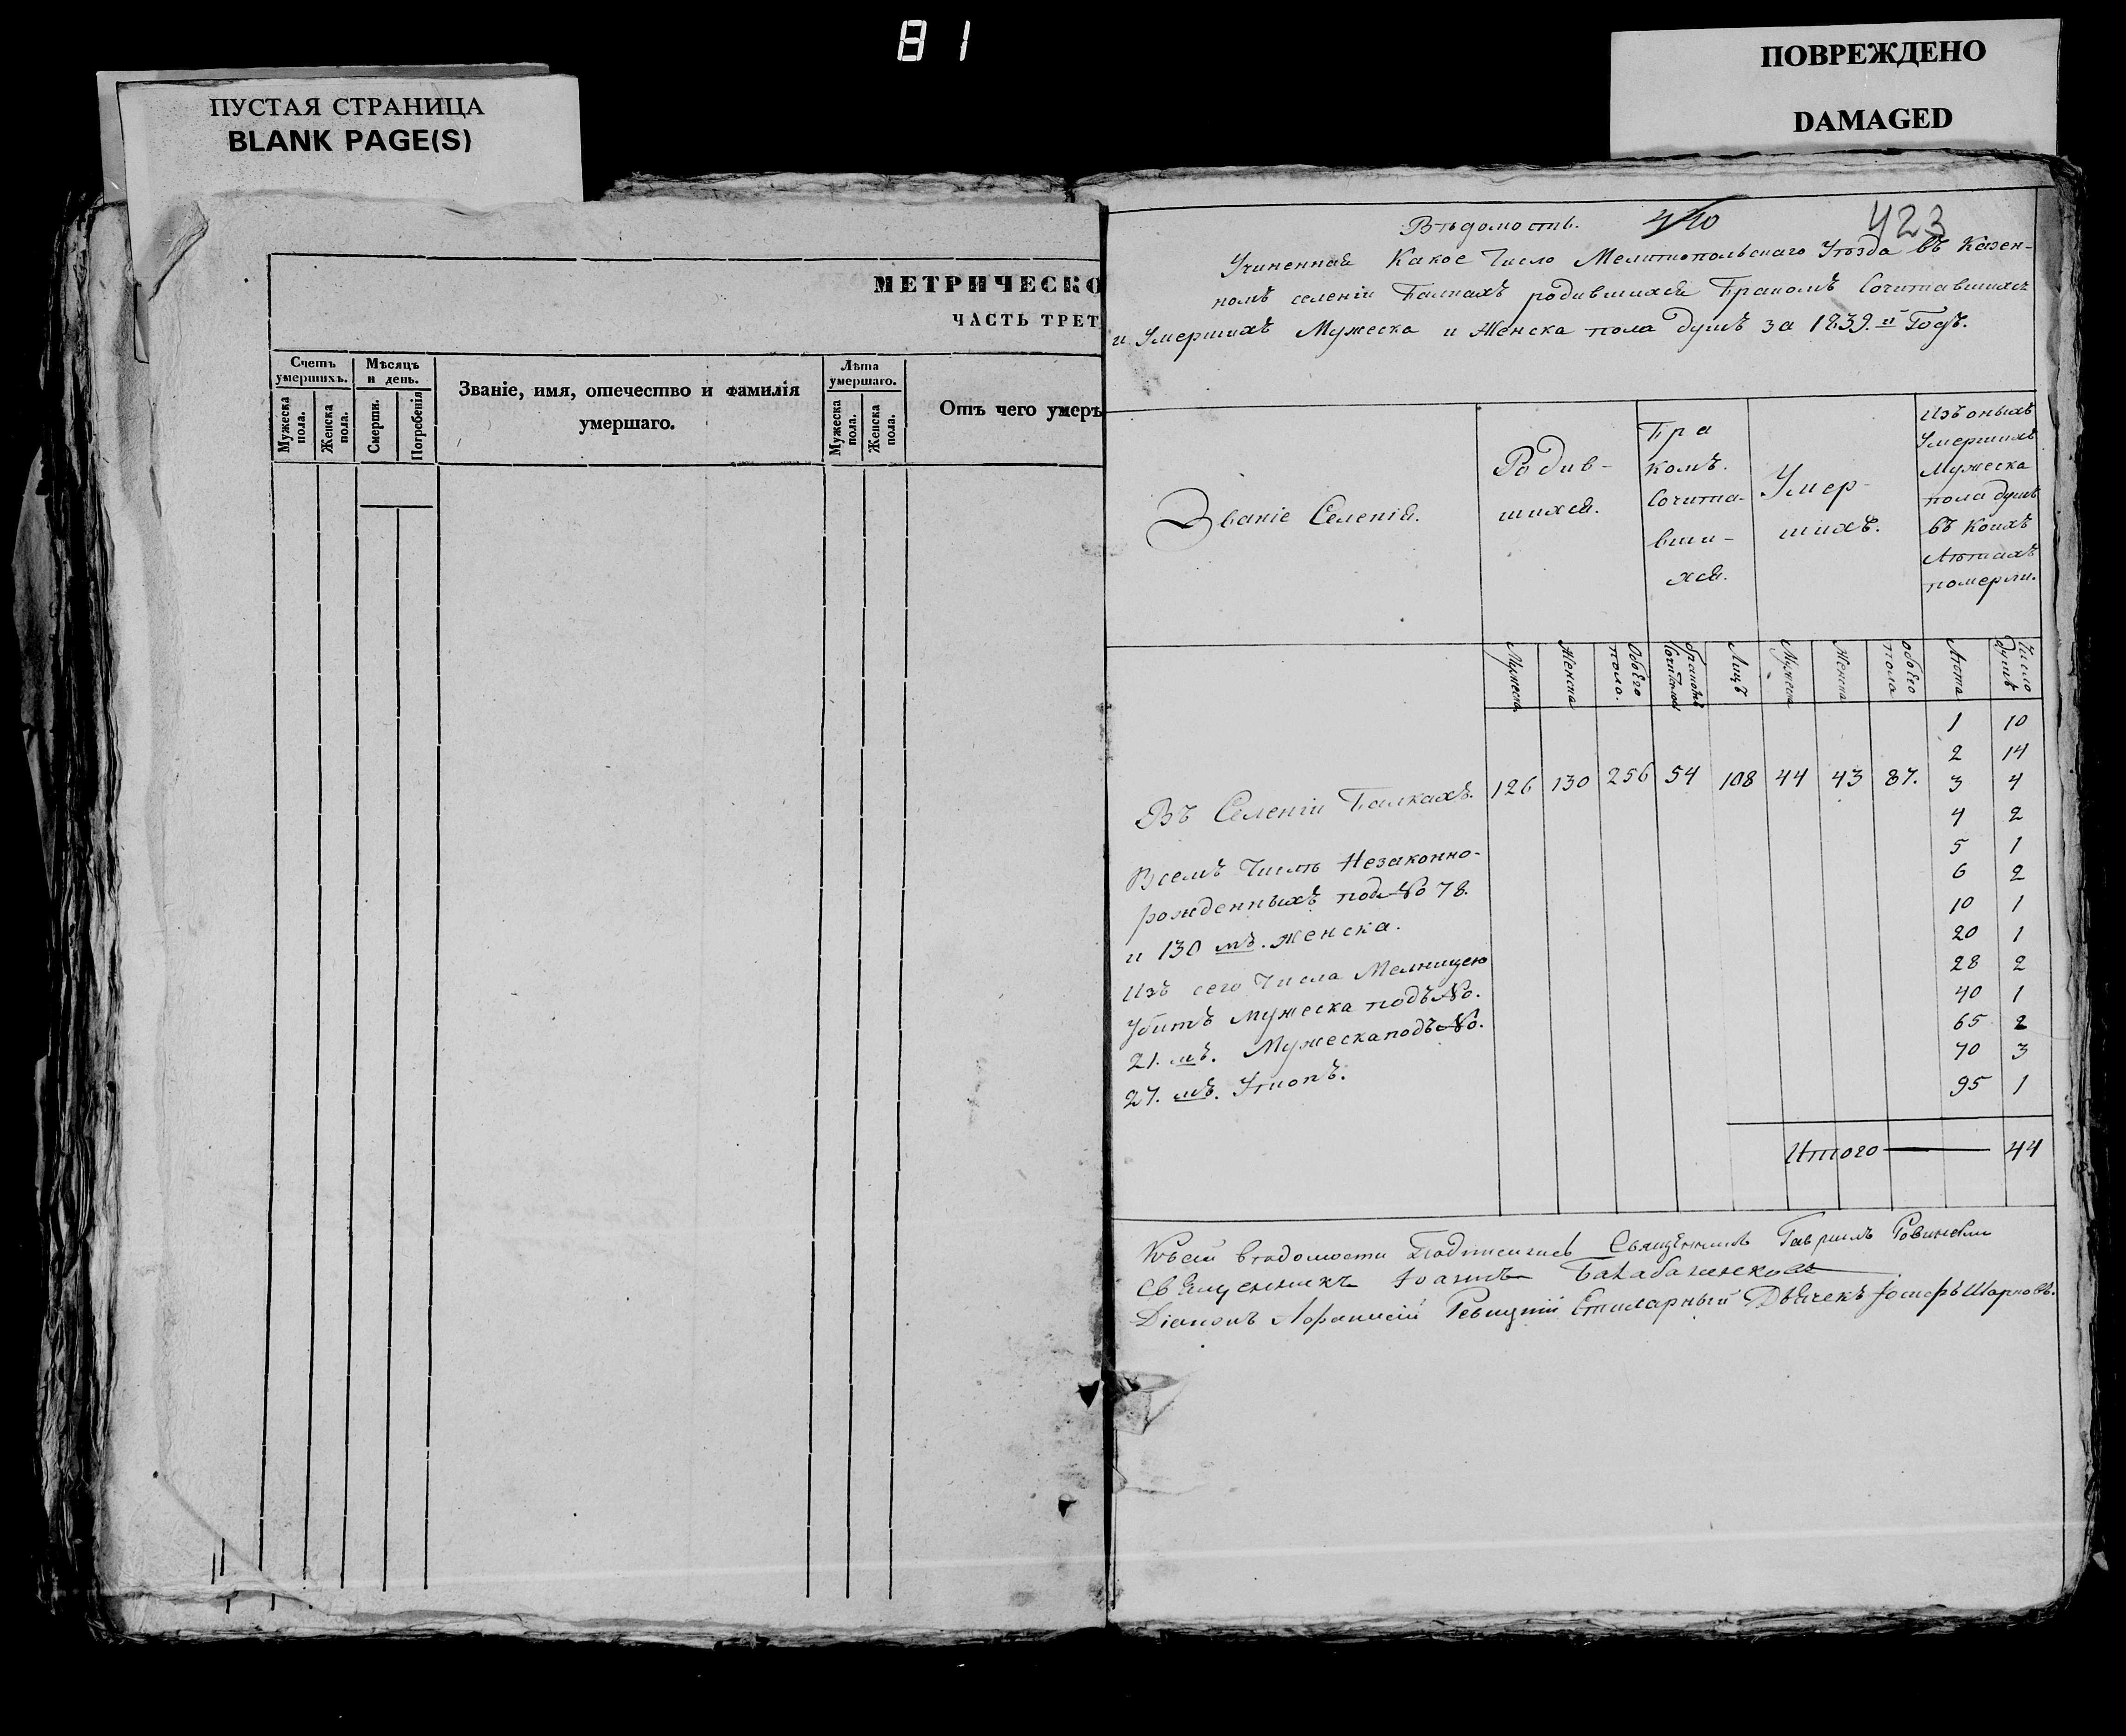 81
ПУСТАЯ СТРАНИЦА
BLANK PAGE(S)
ПОВРЕЖДЕНО
DAMAGED
МЕТРИЧЕСКО
ЧАСТЬ ТРЕТ
Счетъ умершихъ.
Мѣсяцъ и день.
Званіе, имя, отечество и фамилія
умершаго.
Лѣта умершаго.
Отъ чего умеръ
Мужеска пола.
Женска пола.
Смерти.
Погребенія
Мужеска пола.
Женска пола.
Вѣдомость. 423
Учиненная Какое Число Мелитопольскаго Уѣзда въ Казен-
номъ селеніи Балкахъ родившихся Бракомъ Сочитавшихся
и Умершихъ Мужеска и Женска пола душъ за 1839.й Годъ.
Званіе Селенія.
Родив-
шихся.
Бра
комъ.
Сочита-
вши-
хся.
Умер-
шихъ.
Изъ оныхъ
Умершихъ
Мужеска
пола душъ
въ коихъ
Лѣтахъ
померли.
Мужеска
Женска
Обоего пола.
Лицъ
Мужеска
Женска
Обоего пола
Лѣта
Число душъ
Въ Селеніи Балкахъ. 126 130 256 54 108 44 43 87.
1 10
2 14
3 4
4 2
5 1
6 2
10 1
20 1
28 2
40 1
65 2
70 3
95 1
Всемъ Числѣ Незаконно-
рожденныхъ под №о 78.
и 130 мъ. женска.
Изъ сего Числа Мелницею
Убитъ мужеска подъ №о.
21. мъ. Мужеска подъ №о.
27. мъ. Утопъ.
Итого 44
Къ сей вѣдомости Подписались Священникъ Гавриилъ Ровинскій
Священникъ Іоаннъ
Діаконъ Афанасій Дьячекъ Іосифъ